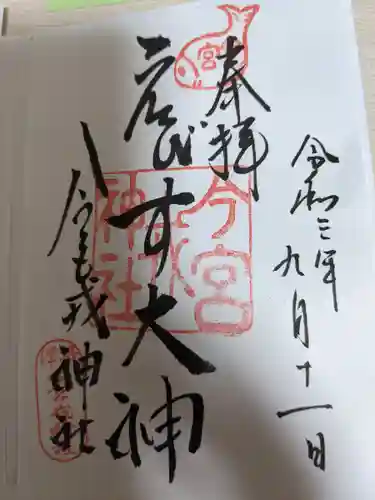 令和三年九月十一日
奉拝
ゑびす大神
今宮戎神社
宮
今宮
戎
神社